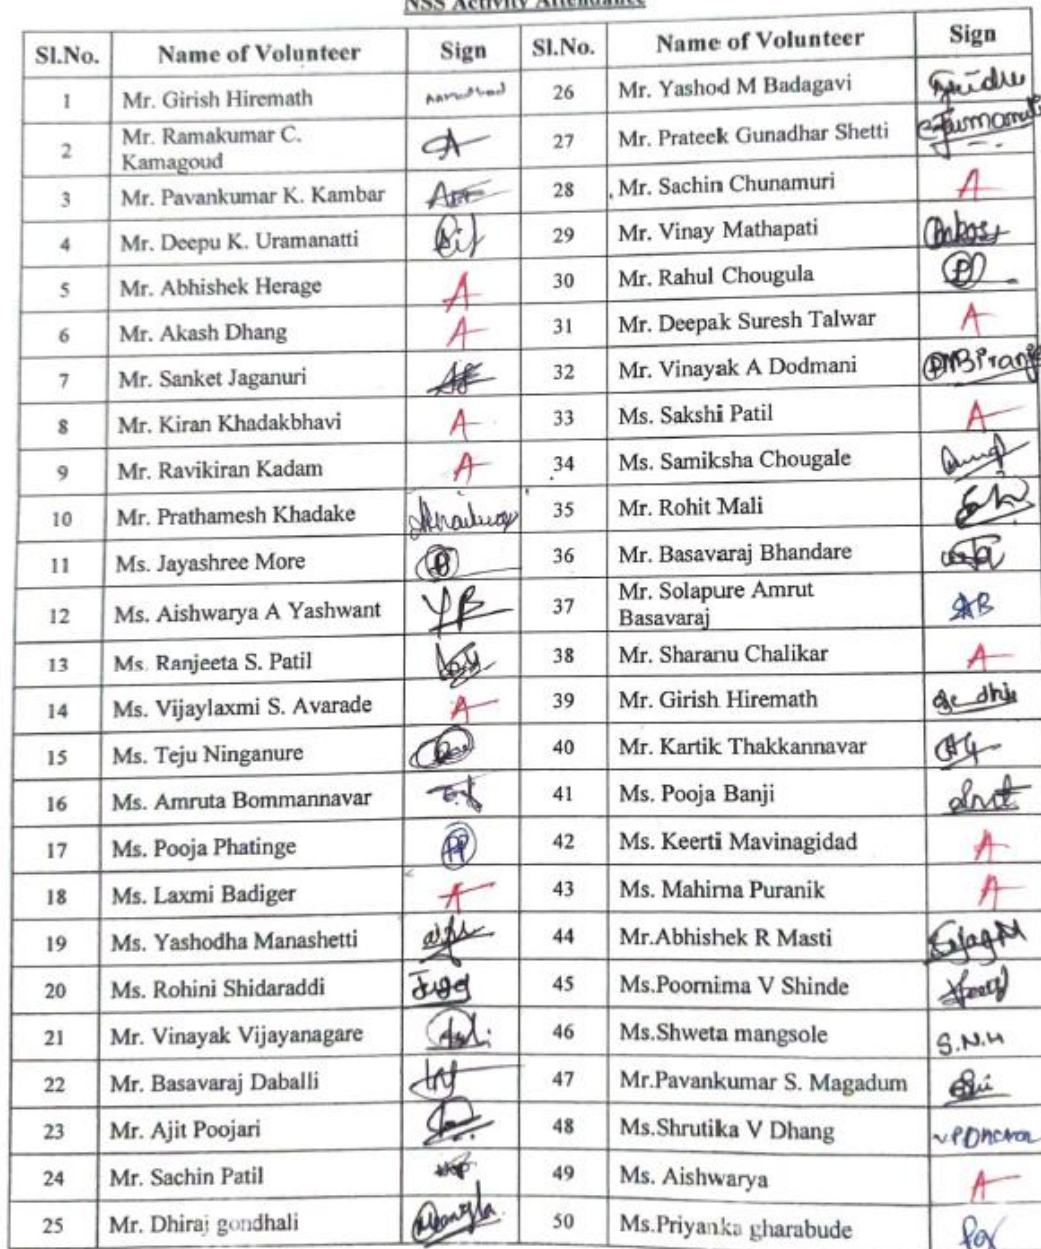 NSS Activity Attendance
Sl.No. Name of Volunteer Sign Sl.No. Name of Volunteer Sign
1 Mr. Girish Hiremath 26 Mr. Yashod M Badagavi
2 Mr. Ramakumar C.
Kamagoud A 27 Mr. Prateek Gunadhar Shetti
3 Mr. Pavankumar K. Kambar 28 Mr. Sachin Chunamuri A
4 Mr. Deepu K. Uramanatti 29 Mr. Vinay Mathapati
5 Mr. Abhishek Herage A 30 Mr. Rahul Chougula
6 Mr. Akash Dhang A 31 Mr. Deepak Suresh Talwar A
7 Mr. Sanket Jaganuri 32 Mr. Vinayak A Dodmani
8 Mr. Kiran Khadakbhavi A 33 Ms. Sakshi Patil A
9 Mr. Ravikiran Kadam A 34 Ms. Samiksha Chougale
10 Mr. Prathamesh Khadake 35 Mr. Rohit Mali
11 Ms. Jayashree More 36 Mr. Basavaraj Bhandare
12 Ms. Aishwarya A Yashwant YB 37 Mr. Solapure Amrut
Basavaraj SAB
13 Ms. Ranjeeta S. Patil 38 Mr. Sharanu Chalikar A
14 Ms. Vijaylaxmi S. Avarade A 39 Mr. Girish Hiremath
15 Ms. Teju Ninganure 40 Mr. Kartik Thakkannavar
16 Ms. Amruta Bommannavar 41 Ms. Pooja Banji
17 Ms. Pooja Phatinge PP 42 Ms. Keerti Mavinagidad A
18 Ms. Laxmi Badiger A 43 Ms. Mahima Puranik A
19 Ms. Yashodha Manashetti 44 Mr.Abhishek R Masti
20 Ms. Rohini Shidaraddi 45 Ms.Poornima V Shinde
21 Mr. Vinayak Vijayanagare 46 Ms.Shweta mangsole S.N.H
22 Mr. Basavaraj Daballi 47 Mr.Pavankumar S. Magadum
23 Mr. Ajit Poojari 48 Ms.Shrutika V Dhang
24 Mr. Sachin Patil 49 Ms. Aishwarya A
25 Mr. Dhiraj gondhali 50 Ms.Priyanka gharabude